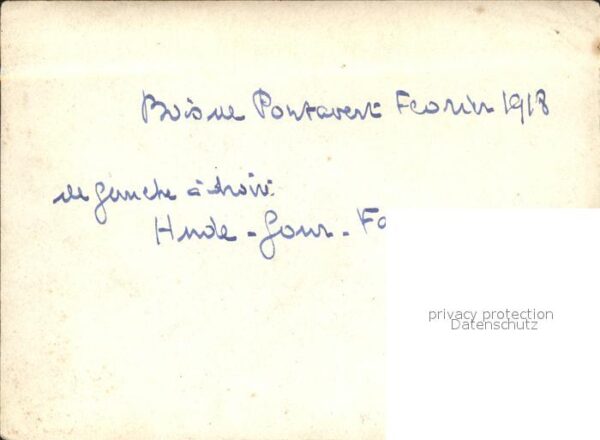 Bois de Pontavert Février 1918
de gauche à droite
Hude - Gour - Fa
privacy protection
Datenschutz